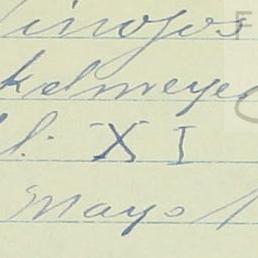 inojos
kelmeye
l. XI
Mayo 1